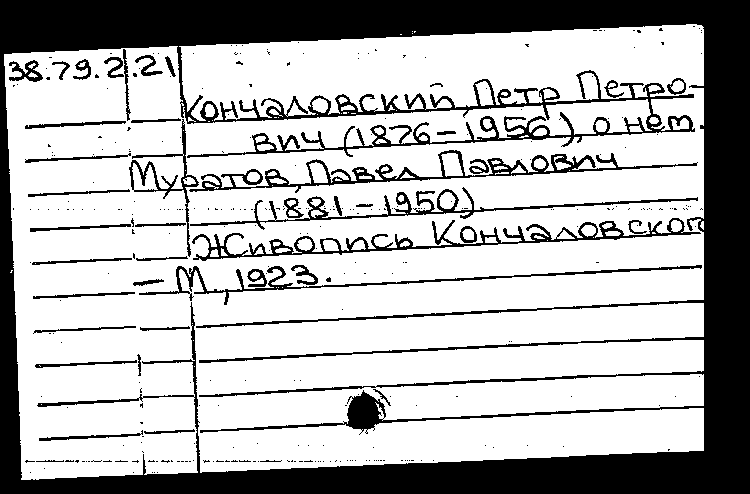 38.79.2.21
Кончаловский, Петр Петро-
вич (1876-1956), о нем.
Муратов, Павел Павлович
(1881-1950).
Живопись Кончаловского
- М., 1923.